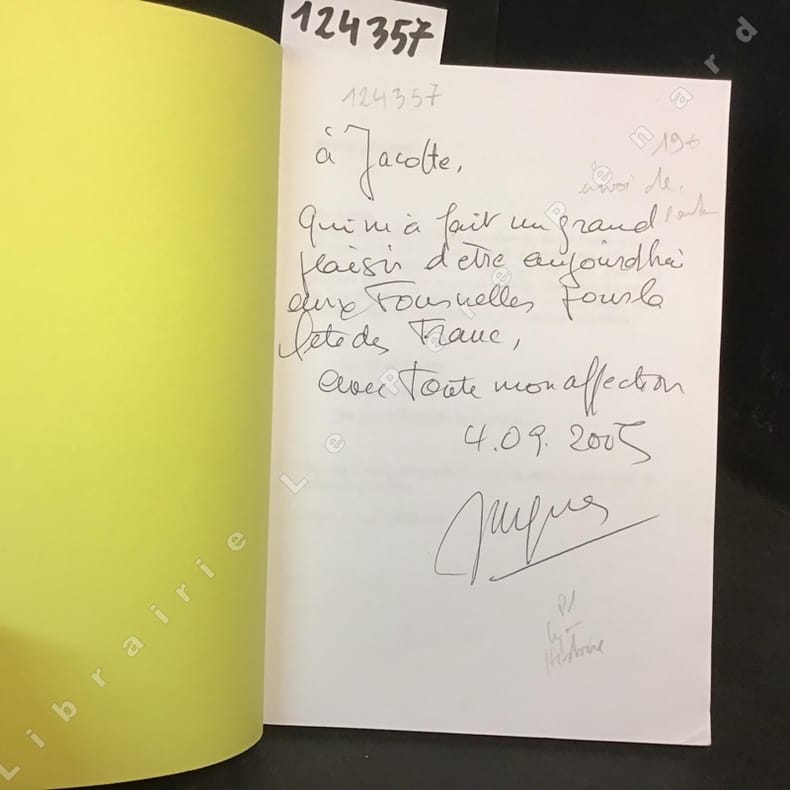 124357
124357
19€
à Jacotte,
envoi de
Qui m'a fait un grand
plaisir d'être aujourd'hui
aux Tournelles pour la
fête des Franc,
avec toute mon affection
4.09.2005
Jacques
P1
Histoire
Librairie Le Père Pénard